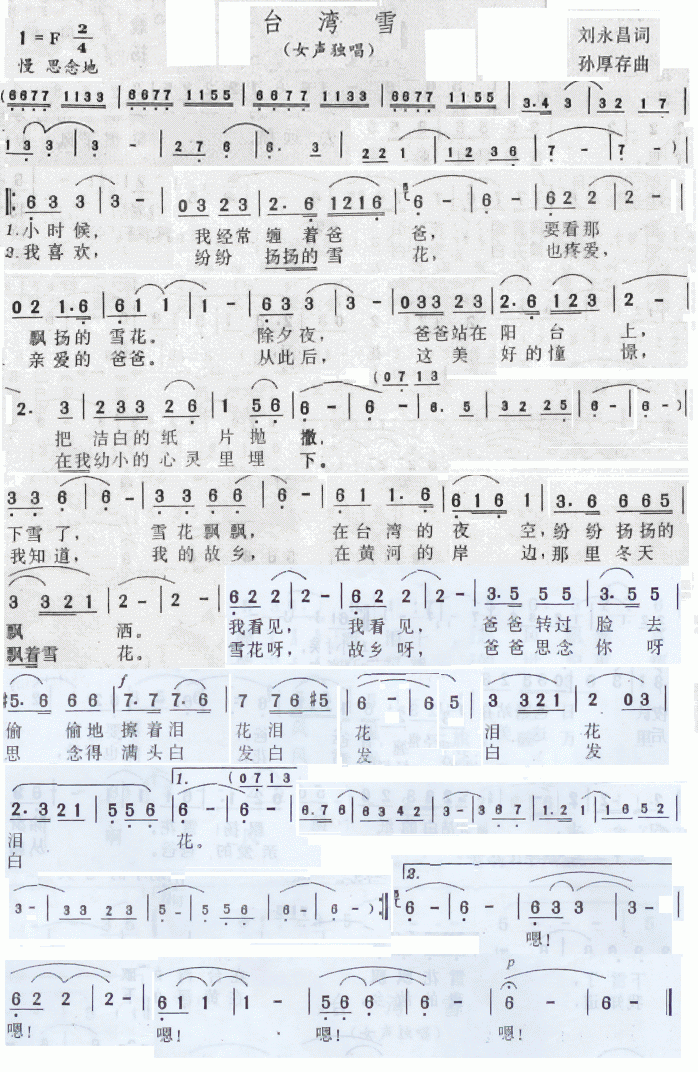 台 湾 雪
(女声独唱)
1=F 2/4
慢 思念地
刘永昌词
孙厚存曲
(6677 1133 | 6677 1155 | 6677 1133 | 6677 1155 | 3·43 | 32 17 |
133 | 3 - | 276 | 6· 3 | 221 | 1236 | 7 - | 7 - )
‖: 633 | 3 - | 03 23 | 2·6 1216 | 6 - | 6 - | 622 | 2 - |
1.小时候, 我经常 缠着爸 爸, 要看那
2.我喜欢, 纷纷 扬扬的雪 花, 也疼爱,
02 1·6 | 611 | 1 - | 633 | 3 - | 033 23 | 2·6 123 | 2 - |
飘扬的 雪花。 除夕夜, 爸爸站在 阳 台 上,
亲爱的 爸爸。 从此后, 这美 好的憧 憬,
(07 13
2· 3 | 233 26 | 1 56 | 6 - | 6 - | 6· 5 | 32 25 | 6 - | 6 - )
把 洁白的纸 片抛 撒,
在我幼小的心 灵里埋 下。
33 6 | 6 - | 33 66 | 6 - | 61 1·6 | 616 1 | 3·6 665 |
下雪了, 雪花飘飘, 在台湾的 夜 空,纷纷扬扬的
我知道, 我的故乡, 在黄河的 岸 边,那里冬天
3 321 | 2 - | 2 - | 622 | 2 - | 622 | 2 - | 3·5 55 | 3·5 55
飘 洒。 我看见, 我看见, 爸爸转过 脸 去
飘着雪 花。 雪花呀, 故乡呀, 爸爸思念 你 呀
f
#5·6 66 | 7·7 76 | 7 76 #5 | 6 - | 6 5 | 3 321 | 2 03 |
偷 偷地 擦着泪 花泪 花 泪 花
思 念得 满头白 发白 发 白 发
1. (07 13
2·321 | 556 | 6 - | 6 - | 6·76 | 6342 | 3 - | 3 67 | 1·2 1 | 1652 |
泪 花。
白
2.
3 - | 33 23 | 5 - | 5 56 | 6 - | 6 - ) :‖ 6 - | 6 - | 633 | 3 - |
嗯!
p
622 | 2 - | 611 | 1 - | 566 | 6 - | 6 - ‖
嗯! 嗯! 嗯! 嗯!